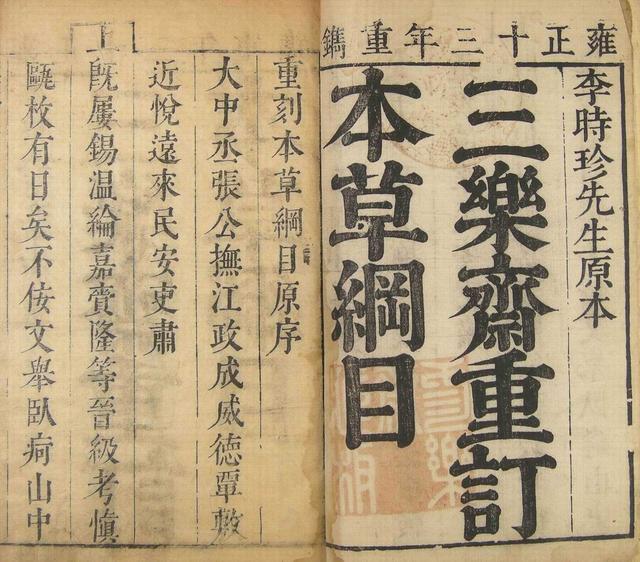 雍正十三年重鐫
李時珍先生原本
三樂齋重訂
本草綱目
重刻本草綱目原序
大中丞張公撫江政成威德覃敷
近悅遠來民安吏肅
上
旣屢錫溫綸嘉賚隆等晉級考慎
甌枚有日矣不佞文舉臥痾山中